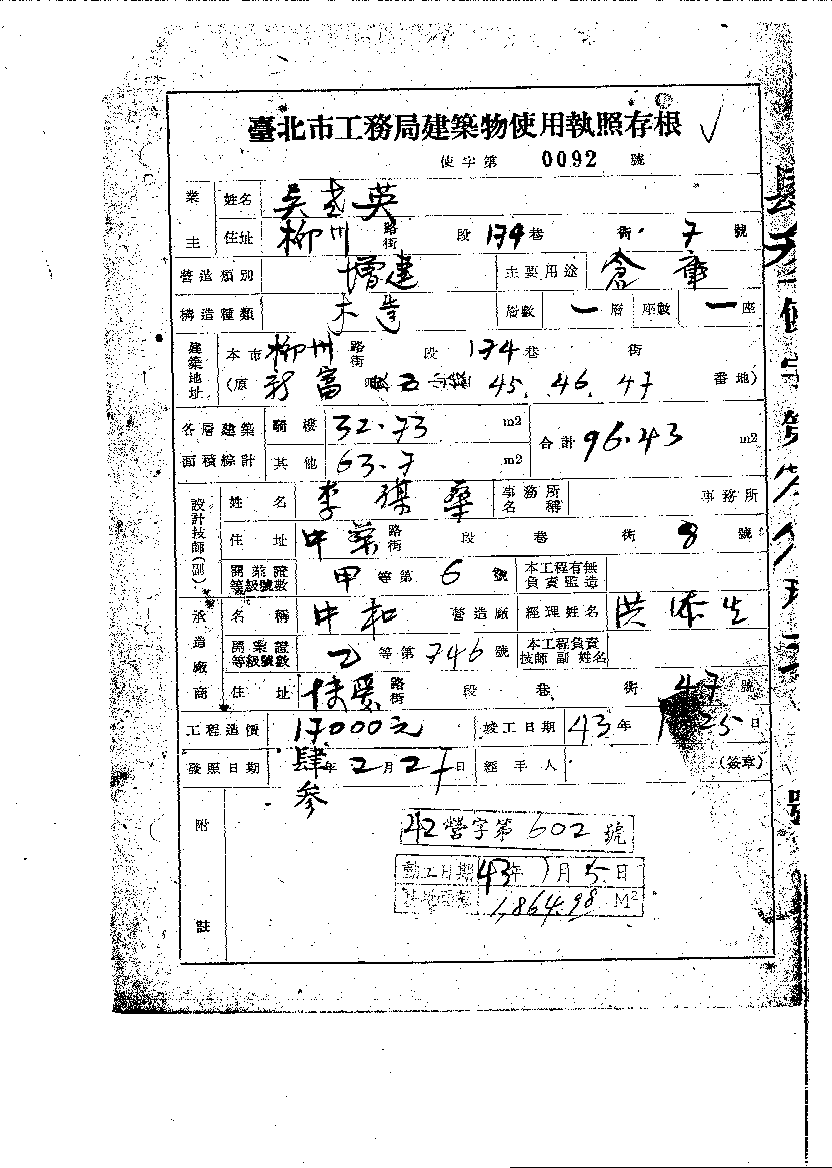 臺北市工務局建築物使用執照存根
使字第 0092 號
業主 姓名 吳 英
住址 柳州 路街 段 174 巷 衖 7 號
營造類別 增建 主要用途 倉庫
構造種類 木造 層數 一 層 座數 一 座
建築地址 本市 柳州 路街 段 174 巷 衖
(原 新富 五 45. 46. 47 番地)
各層建築面積綜計 騎樓 32.73 m2 合計 96.43 m2
其他 63.7 m2
設計技師(副) 姓名 李 事務所名稱 事務所
住址 中華 路街 段 巷 衖 8 號
開業證等級號數 甲 等第 6 號 本工程有無負責監造
承造廠商 名稱 中和 營造廠 經理姓名 洪
開業證等級號數 乙 等第 746 號 本工程負責技師副姓名
住址 路街 段 巷 衖 47 號
工程造價 17000元 竣工日期 43年 25日
發照日期 肆參年 2月27日 經手人 (簽章)
附註
42營字第602號
動工日期 43年1月5日
1,864.98 M²